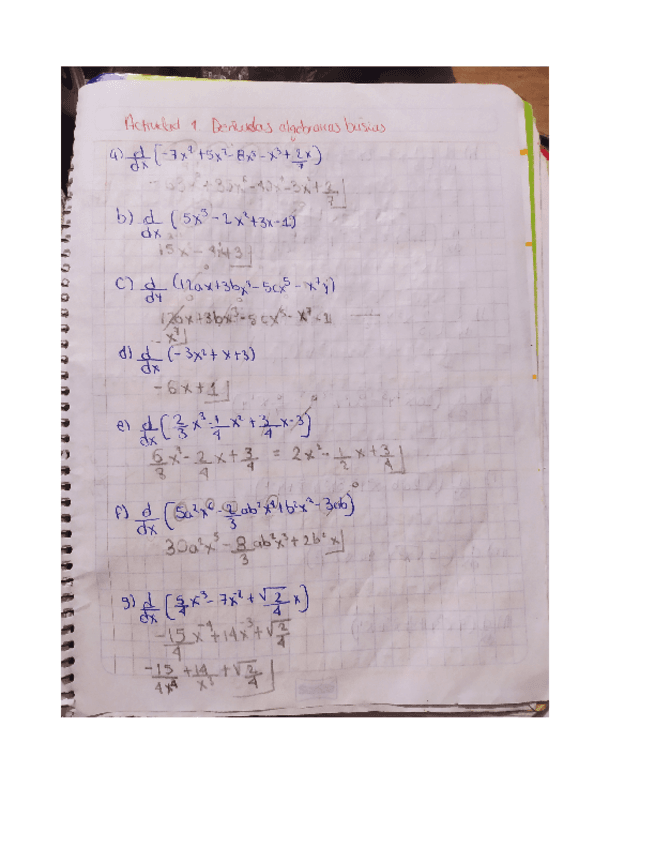 Actividad 1 Derivadas algebraicas basicas
a) d/dx (-7x⁹+5x⁷-8x⁵-x³+2x/7)
-63x⁸+35x⁶-40x⁴-3x²+2/7
b) d/dx (5x³-2x²+3x-1)
15x²-4x+3
c) d/dy (12ax+3bx³-5cx⁵-x³y)
12ax+3bx³-5cx⁵-x³·1
-x³
d) d/dx (-3x²+x+3)
-6x+1
e) d/dx (2/3 x³-1/4 x²+3/4 x-3)
6/3 x²-2/4 x+3/4 = 2x²-1/2 x+3/4
f) d/dx (5a²x⁶-2/3 ab²x⁴+b²x²-3ab)
30a²x⁵-8/3 ab²x³+2b²x
g) d/dx (5/4 x⁻³-7x⁻²+√2/4 x)
-15/4 x⁻⁴+14x⁻³+√2/4
-15/4x⁴+14/x³+√2/4